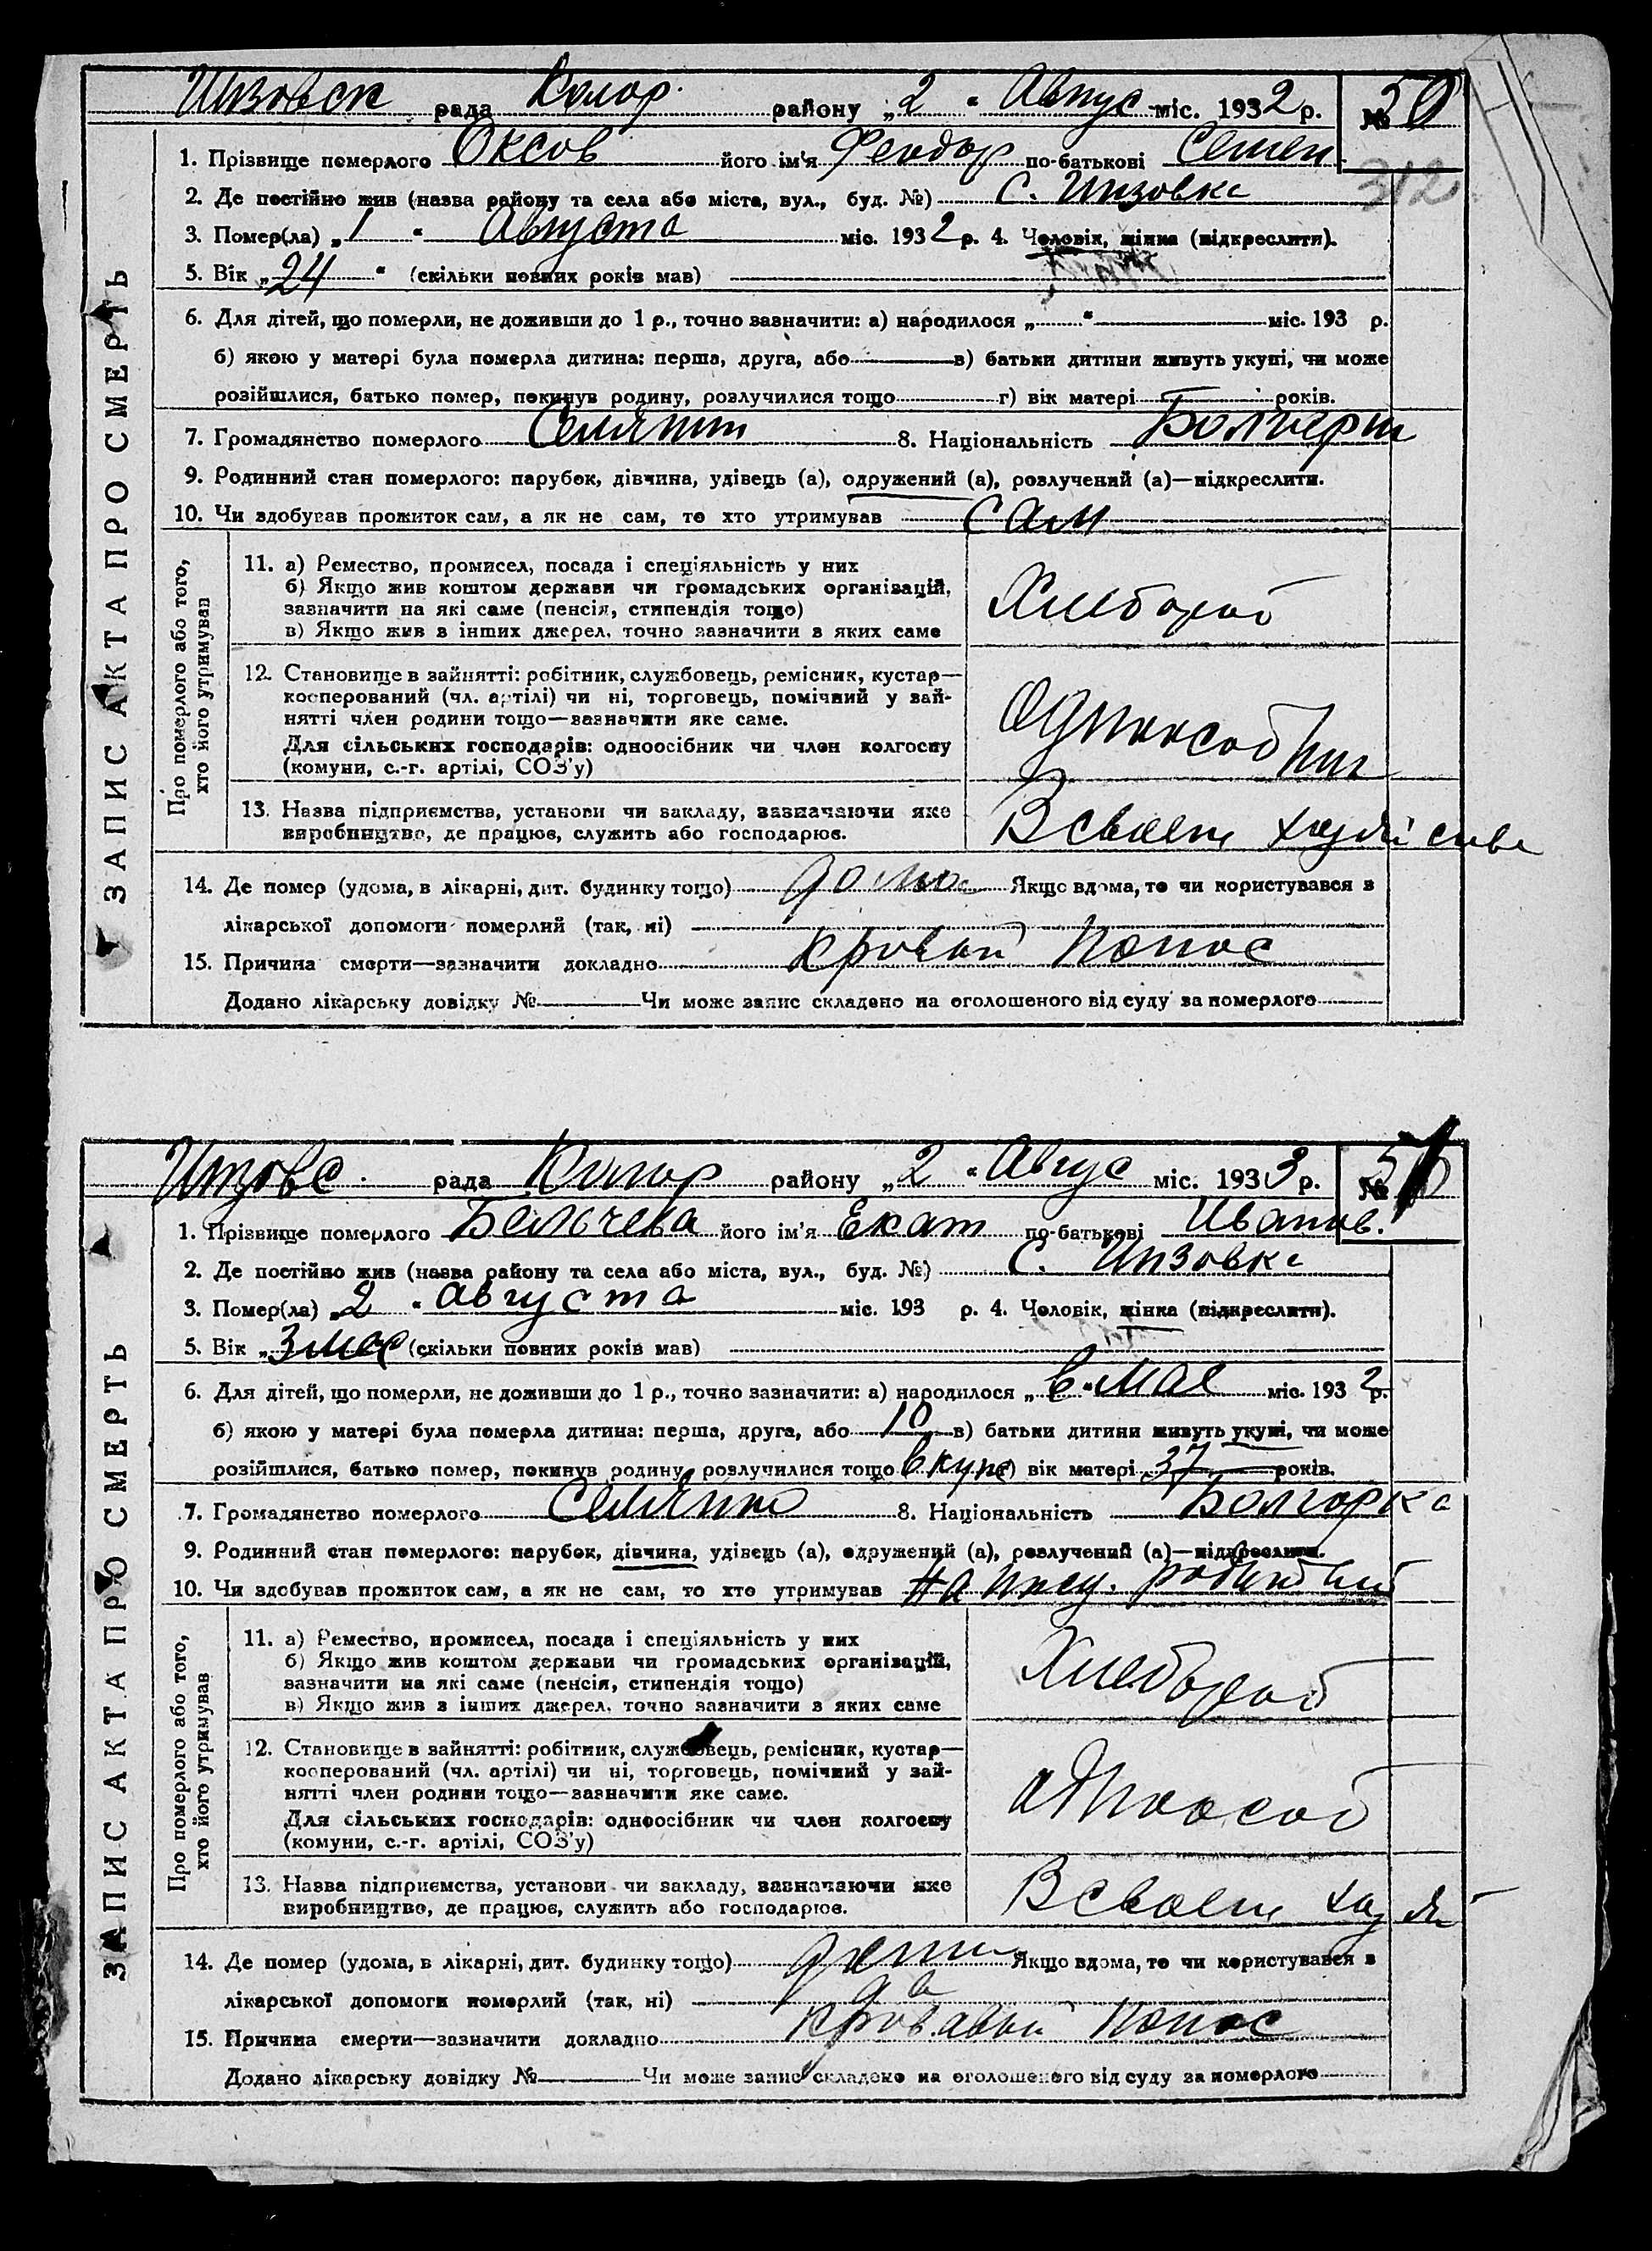 Инзовск рада Колар. району „2“ Август міс. 1932 р. № 50
1. Прізвище померлого Оксов його ім'я Феодор по-батькові Семен
312
2. Де постійно жив (назва району та села або міста, вул., буд. №) С. Инзовка
3. Помер(ла) „1“ Августа міс. 1932 р. 4. Чоловік, жінка (підкреслити).
5. Вік „24“ (скільки повних років мав)
6. Для дітей, що померли, не доживши до 1 р., точно зазначити: а) народилося „ “ міс. 193 р.
б) якою у матері була померла дитина: перша, друга, або в) батьки дитини живуть укупі, чи може
розійшлися, батько помер, покинув родину, розлучилися тощо г) вік матері років.
7. Громадянство померлого Селянин 8. Національність
9. Родинний стан померлого: парубок, дівчина, удівець (а), одружений (а), розлучений (а)—підкреслити.
10. Чи здобував прожиток сам, а як не сам, то хто утримував сам
ЗАПИС АКТА ПРО СМЕРТЬ
Про померлого або того,
хто його утримував
11. а) Ремество, промисел, посада і спеціяльність у них
б) Якщо жив коштом держави чи громадських організацій,
зазначити на які саме (пенсія, стипендія тощо)
в) Якщо жив з інших джерел, точно зазначити з яких саме
Хлебороб
12. Становище в зайнятті: робітник, службовець, ремісник, кустар—
кооперований (чл. артілі) чи ні, торговець, помічний у зай-
нятті член родини тощо—зазначити яке саме.
Для сільських господарів: одноосібник чи член колгоспу
(комуни, с.-г. артілі, СОЗ'у)
13. Назва підприємства, установи чи закладу, зазначаючи яке
виробництво, де працює, служить або господарює.
В своем
14. Де помер (удома, в лікарні, дит. будинку тощо) дома Якщо вдома, то чи користувався з
лікарської допомоги померлий (так, ні)
15. Причина смерти—зазначити докладно кровавий понос
Додано лікарську довідку № Чи може запис складено на оголошеного від суду за померлого
Инзовс. рада Колар району „2“ Авгус міс. 1933 р. № 51
1. Прізвище померлого Бельчева його ім'я Екат по-батькові Иванов.
2. Де постійно жив (назва району та села або міста, вул., буд. №) С. Инзовка
3. Помер(ла) „2“ августа міс. 193 р. 4. Чоловік, жінка (підкреслити).
5. Вік „3 мес (скільки повних років мав)
6. Для дітей, що померли, не доживши до 1 р., точно зазначити: а) народилося „в“ мае міс. 1932 р.
б) якою у матері була померла дитина: перша, друга, або 10 в) батьки дитини живуть укупі, чи може
розійшлися, батько помер, покинув родину, розлучилися тощо вкупе г) вік матері 37 років.
7. Громадянство померлого Селянка 8. Національність Болгарка
9. Родинний стан померлого: парубок, дівчина, удівець (а), одружений (а), розлучений (а)—підкреслити.
10. Чи здобував прожиток сам, а як не сам, то хто утримував На
ЗАПИС АКТА ПРО СМЕРТЬ
Про померлого або того,
хто його утримував
11. а) Ремество, промисел, посада і спеціяльність у них
б) Якщо жив коштом держави чи громадських організацій,
зазначити на які саме (пенсія, стипендія тощо)
в) Якщо жив з інших джерел, точно зазначити з яких саме
Хлебороб
12. Становище в зайнятті: робітник, службовець, ремісник, кустар—
кооперований (чл. артілі) чи ні, торговець, помічний у зай-
нятті член родини тощо—зазначити яке саме.
Для сільських господарів: одноосібник чи член колгоспу
(комуни, с.-г. артілі, СОЗ'у)
одноособ
13. Назва підприємства, установи чи закладу, зазначаючи яке
виробництво, де працює, служить або господарює.
В своем хазяй
14. Де помер (удома, в лікарні, дит. будинку тощо) Якщо вдома, то чи користувався з
лікарської допомоги померлий (так, ні) да
15. Причина смерти—зазначити докладно кровавый понос
Додано лікарську довідку № Чи може запис складено на оголошеного від суду за померлого